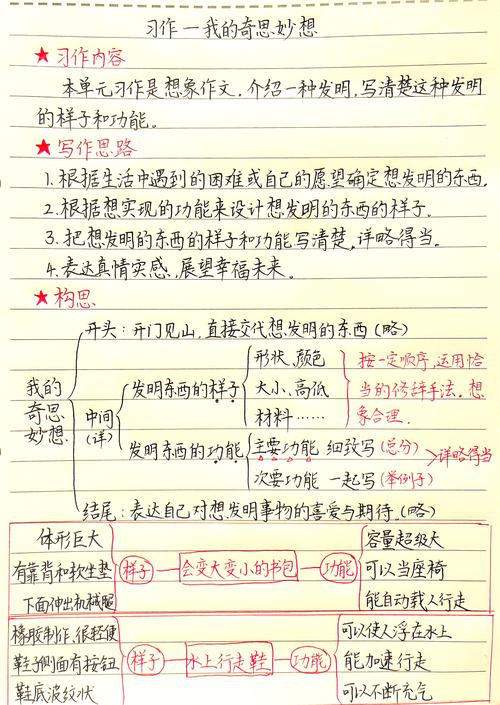 习作一我的奇思妙想
★习作内容
本单元习作是想象作文,介绍一种发明,写清楚这种发明
的样子和功能。
★写作思路
1.根据生活中遇到的困难或自己的愿望确定想发明的东西.
2.根据想实现的功能来设计想发明的东西的样子.
3.把想发明的东西的样子和功能写清楚,详略得当。
4.表达真情实感,展望幸福未来。
★构思
开头:开门见山,直接交代想发明的东西(略)
我的
奇思
妙想
中间
(详)
发明东西的样子
形状、颜色
大小、高低
材料……
按一定顺序,运用恰
当的修辞手法.想
象合理.
发明东西的功能
主要功能 细致写(总分)
次要功能 一起写(举例子)
详略得当
结尾:表达自己对想发明事物的喜爱与期待.(略)
体形巨大
有靠背和软坐垫
下面伸出机械腿
样子
会变大变小的书包
功能
容量超级大
可以当座椅
能自动载人行走
橡胶制作,很轻便
鞋子侧面有按钮
鞋底波纹状
样子
水上行走鞋
功能
可以使人浮在水上
能加速行走
可以不断充气